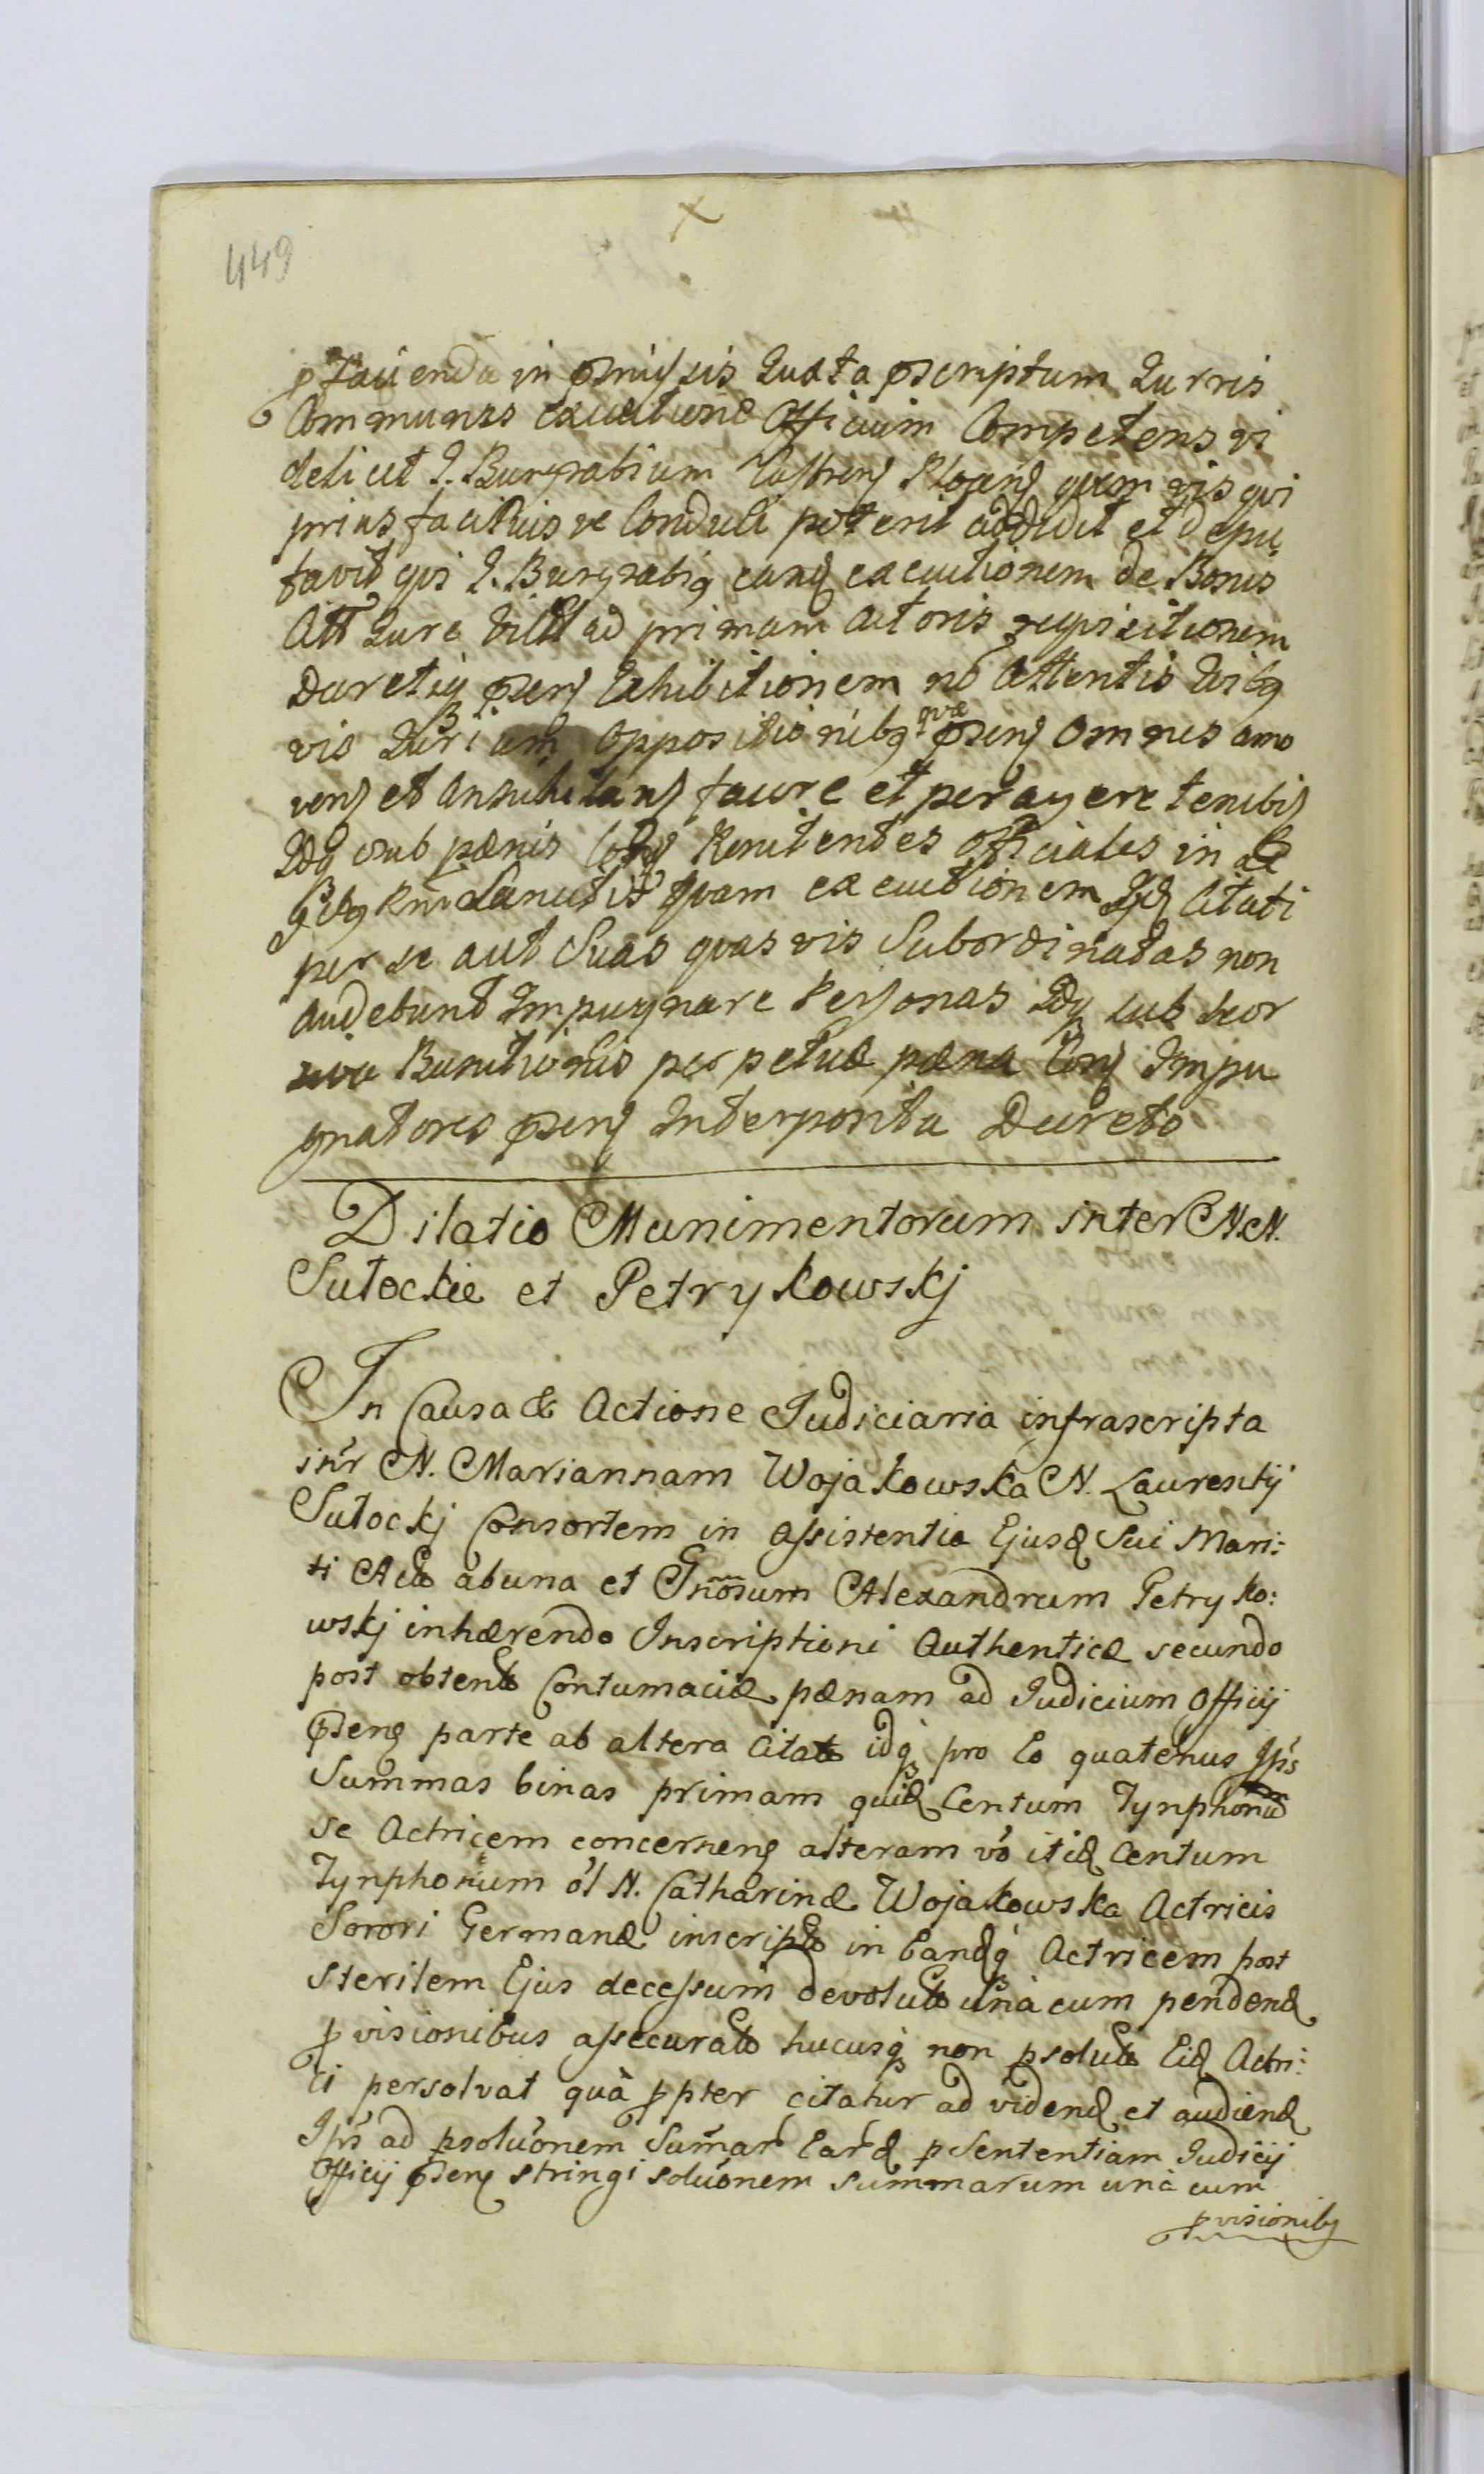 449
facienda in præmissis Juxta præscriptum Jurris
Communis executione Officium Competens vi
delicet J. Burgrabium Castren Plocen quem vis qvi
prius faciliusve Conduci poterit addidit et depu
tavit qvi J. Burgrabiq eand executionem de Bonis
Att Jure Vict ad primam actoris reqvisitionem
Decretiq præsen Exhibitionem nō attentis Qvibq
vis Jurium oppositionibq qvæ præsen omnes amo
ven et Ansuhitan facere et peragere tenebit
Idq sub pænis Con Renitentes officiales in Le
gibq Rni Sancitis Qvam executionem Citati
per se aut Suas qvas vis Subordinatas non
audebunt Impugnare Personas Idq sub
Banitionis perpetuæ pæna Con Impu
gnatores præsen Interposita Decreto
Dilatio Munimentorum inter N.N.
Sutockie et Petrykowskj
In Causa & Actione Judiciaria infrascripta
intr N. Mariannam Wojakowska N. Laurentij
Sutockj Consortem in assistentia Ejusd Sui Mari:
ti Act abuna et Gnōsum Alexandrum Petryko:
wskj inhærendo Inscriptioni Authenticæ secundo
post obtent Contumaciæ pænam ad Judicium Officij
præsens parte ab altera Citat idq pro Eo quatenus Ips
Summas binas primam quid Centum Tynphonum
se Actricem concernens alteram vō itid Centum
Tynphonum ōl N. Catharinæ Wojakowska Actricis
Sorori Germanæ inscript in Eandq Actricem post
sterilem Ejus decessum devolut unà cum pendend
pvisionibus assecurat hucusq non psolut Eid Actri:
ci persolvat quà ppter citatur ad vidend et audiend
Ips ad psolūonem Summar Eard p Sententiam Judicij
Officij præsen stringi solūonem summarum unà cum
pvisionibq